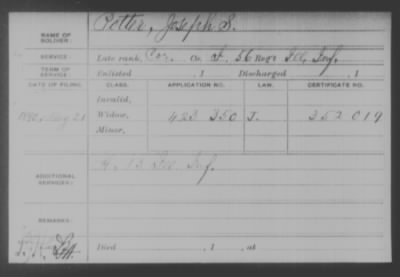 NAME OF SOLDIER: Potter, Joseph S.
SERVICE: Late rank, Cor. Co. F, 56 Reg't Ill. Inf.
TERM OF SERVICE: Enlisted , 1 Discharged , 1
DATE OF FILING. CLASS. APPLICATION NO. LAW. CERTIFICATE NO.
Invalid,
Widow, 423 350 J. 352 019
Minor,
ADDITIONAL SERVICES: 13 Ill. Inf.
REMARKS:
Died , 1 , at